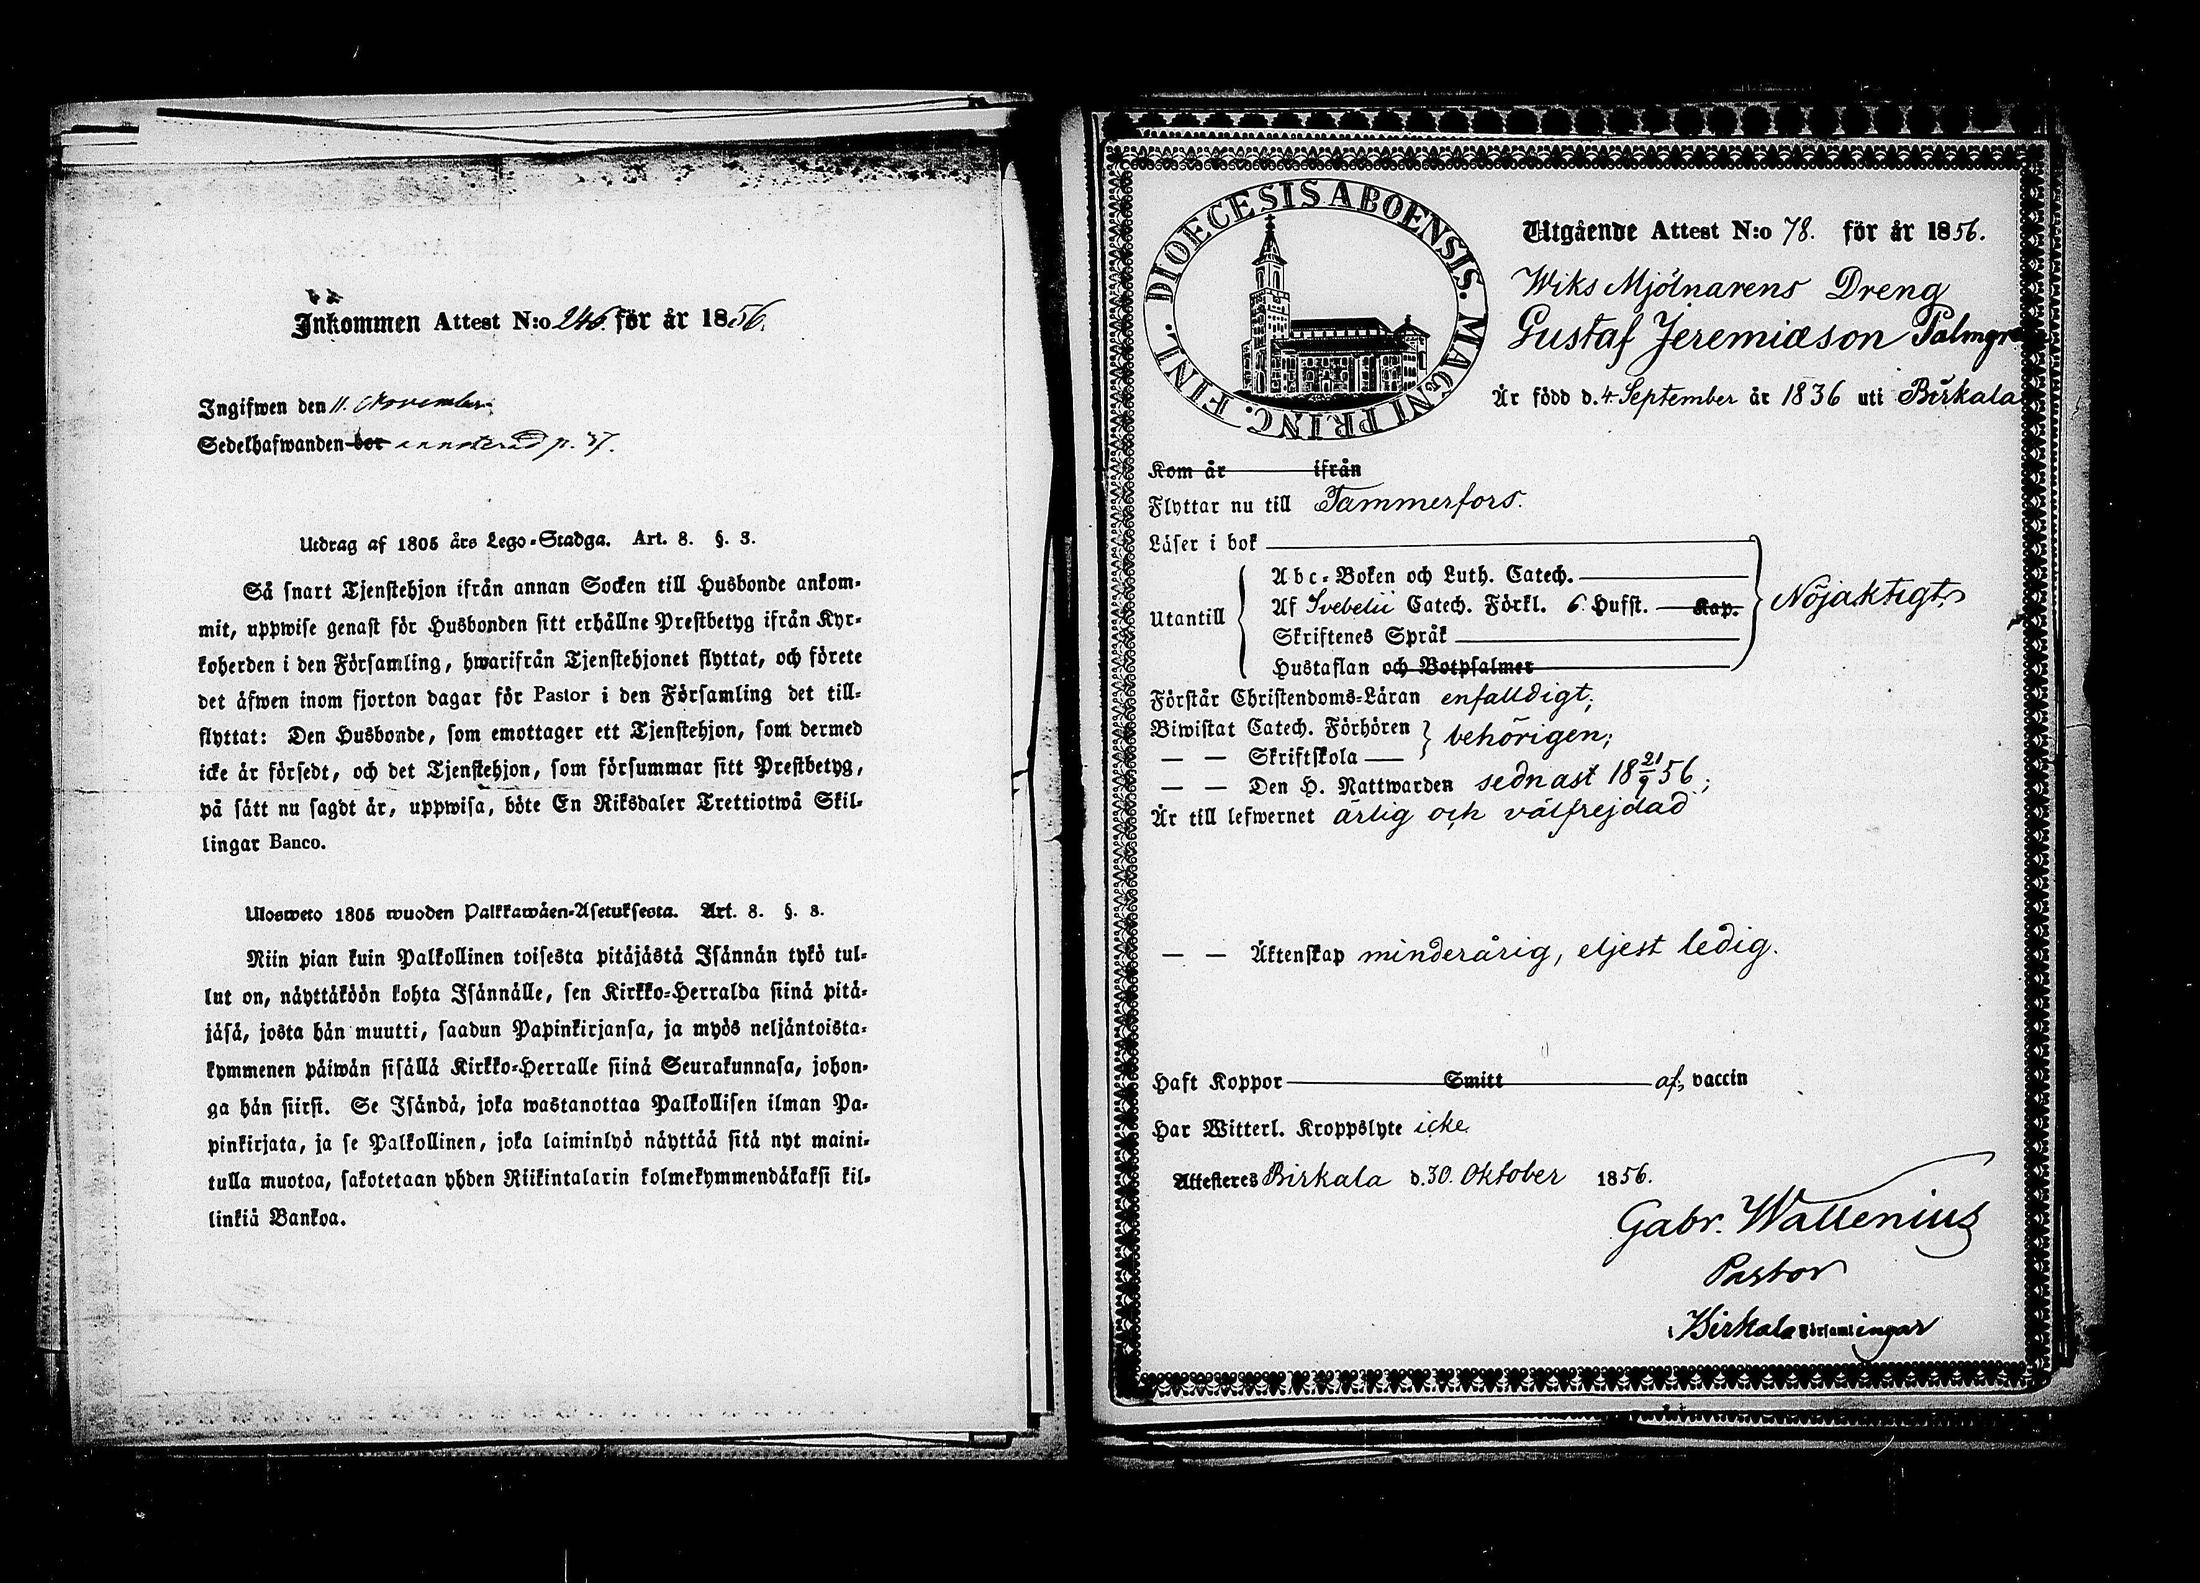 Inkommen Attest N:o 246. för år 1856.
Ingifwen den 11. November
Sedelhafwanden bor annoterad p. 37.
Utdrag af 1805 års Lego-Stadga. Art. 8. §. 3.
Så snart Tjenstehjon ifrån annan Socken till Husbonde ankom-
mit, uppwise genast för Husbonden sitt erhållne Prestbetyg ifrån Kyr-
koherden i den Församling, hwarifrån Tjenstehjonet flyttat, och förete
det äfwen inom fjorton dagar för Pastor i den Församling det till-
flyttat: Den Husbonde, som emottager ett Tjenstehjon, som dermed
icke är försedt, och det Tjenstehjon, som försummar sitt Prestbetyg,
på sätt nu sagdt är, uppwisa, böte En Riksdaler Trettiotwå Skil-
lingar Banco.
Ulosweto 1805 wuoden Palkkawäen-Asetuksesta. Art. 8. §. 3.
Niin pian kuin Palkollinen toisesta pitäjästä Isännän tykö tul-
lut on, näyttäköön kohta Isännälle, sen Kirkko-Herralda siinä pitä-
jäsä, josta hän muutti, saadun Papinkirjansa, ja myös neljäntoista-
kymmenen päiwän sisällä Kirkko-Herralle siinä Seurakunnasa, johon-
ga hän siirsi. Se Isändä, joka wastanottaa Palkollisen ilman Pa-
pinkirjata, ja se Palkollinen, joka laiminlyö näyttää sitä nyt maini-
tulla muotoa, sakotetaan yhden Riikintalarin kolmekymmendäkaksi kil-
linkiä Bankoa.
DIOECESIS ABOENSIS. MAGNI PRINC. FINL.
Utgående Attest N:o 78. för år 1856.
Wiks Mjölnarens Dreng
Gustaf Jeremiæson Palmgre
Är född d. 4 September år 1836 uti Birkala
Kom år ifrån
Flyttar nu till Tammerfors.
Läser i bok
Utantill
Abc-Boken och Luth. Catech.
Af Svebelii Catech. Förkl. 6 Hufst. Kap.
Skriftenes Språk
Hustaflan och Botpsalmer
Nöjaktigt;
Förstår Christendoms-Läran enfalldigt;
Biwistat Catech. Förhören
— — Skriftskola —
behörigen;
— — Den H. Nattwarden sednast 18 21/9 56;
Är till lefwernet ärlig och välfrejdad
— — Äktenskap minderårig, eljest ledig.
Haft Koppor Smitt af vaccin
Har Witterl. Kroppslyte icke
Attesteres Birkala d. 30. Oktober 1856.
Gabr. Wallenius
Pastor
i Birkala Församlingar